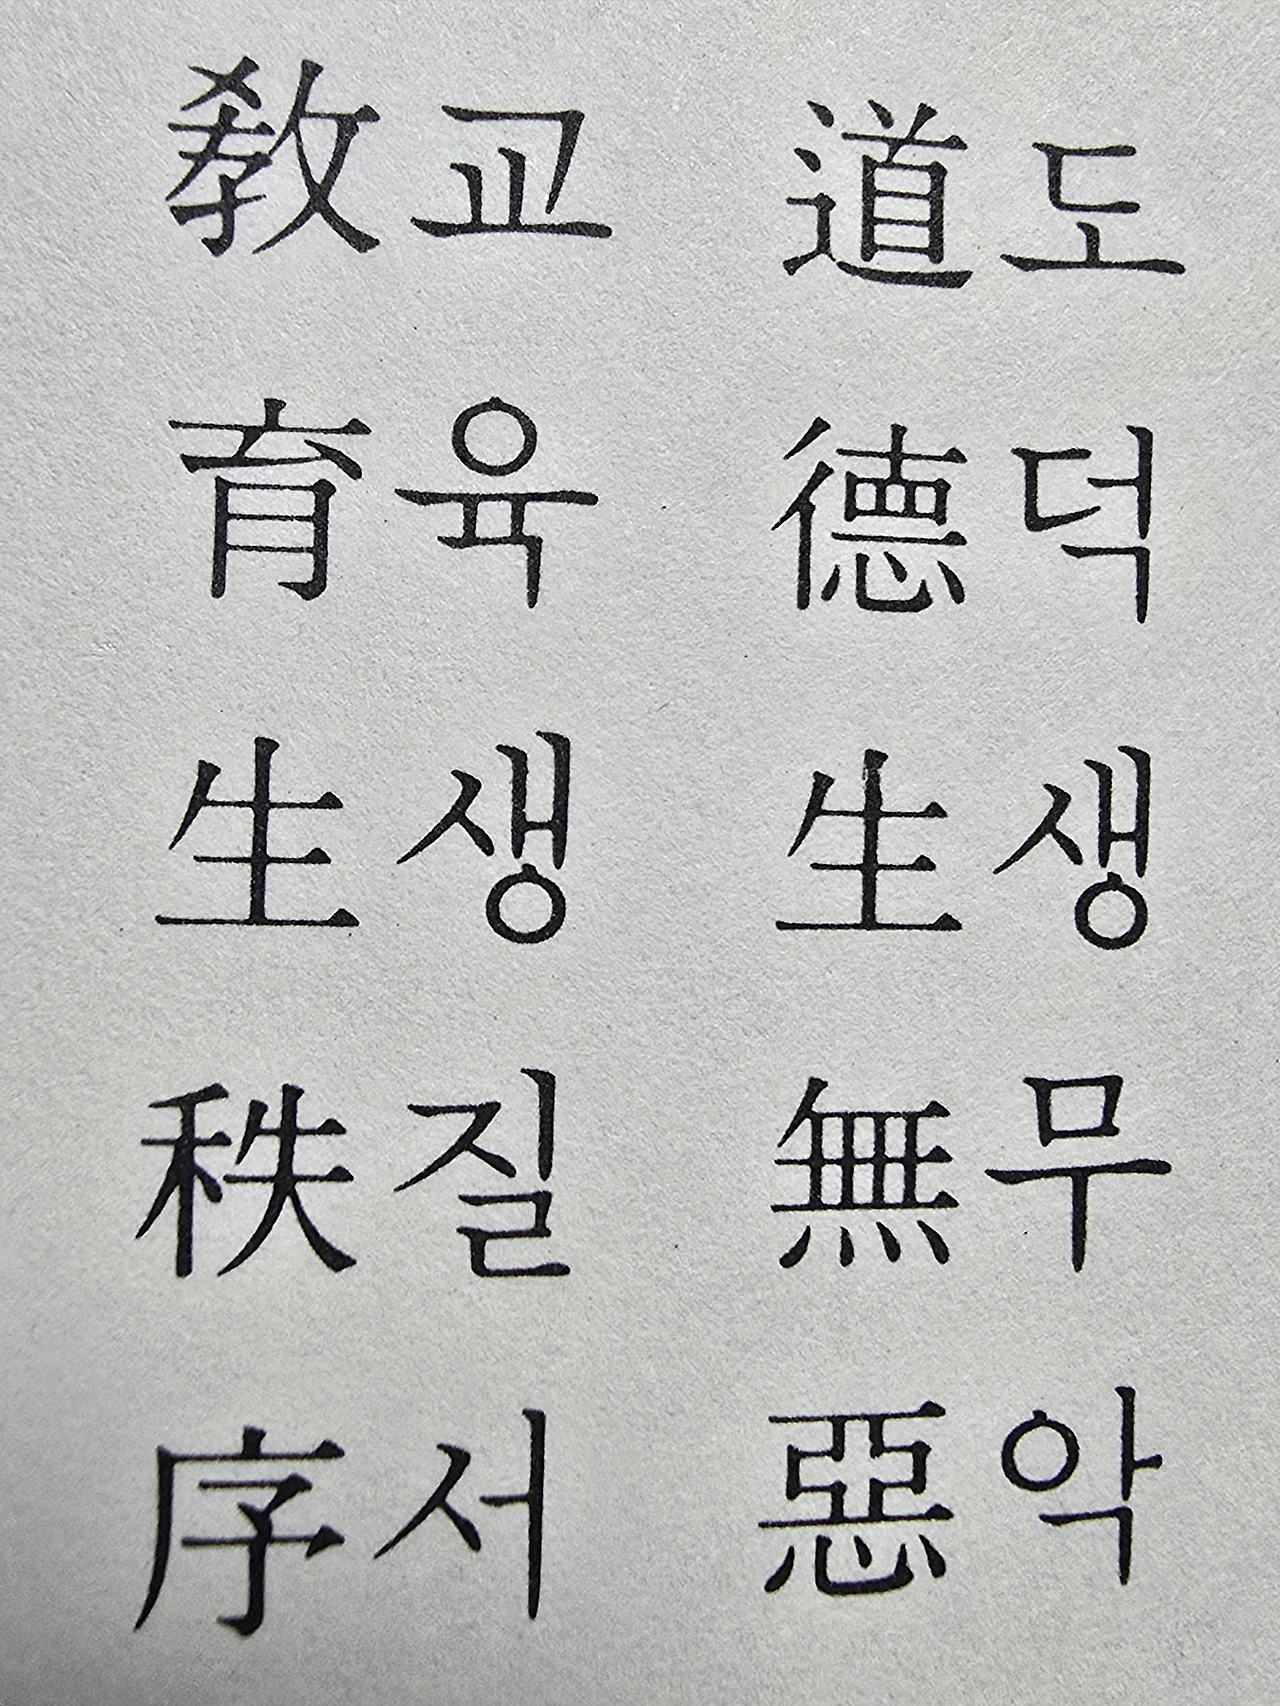 道도德덕生생無무惡악
敎교育육生생秩질序서